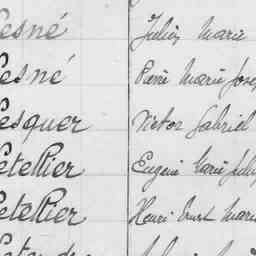 Lesné Julien Marie
Lesné Pierre Marie Jose
Lesquer Victor Gabriel
Letellier Eugène Marie
Letellier Henri Ernest Marie